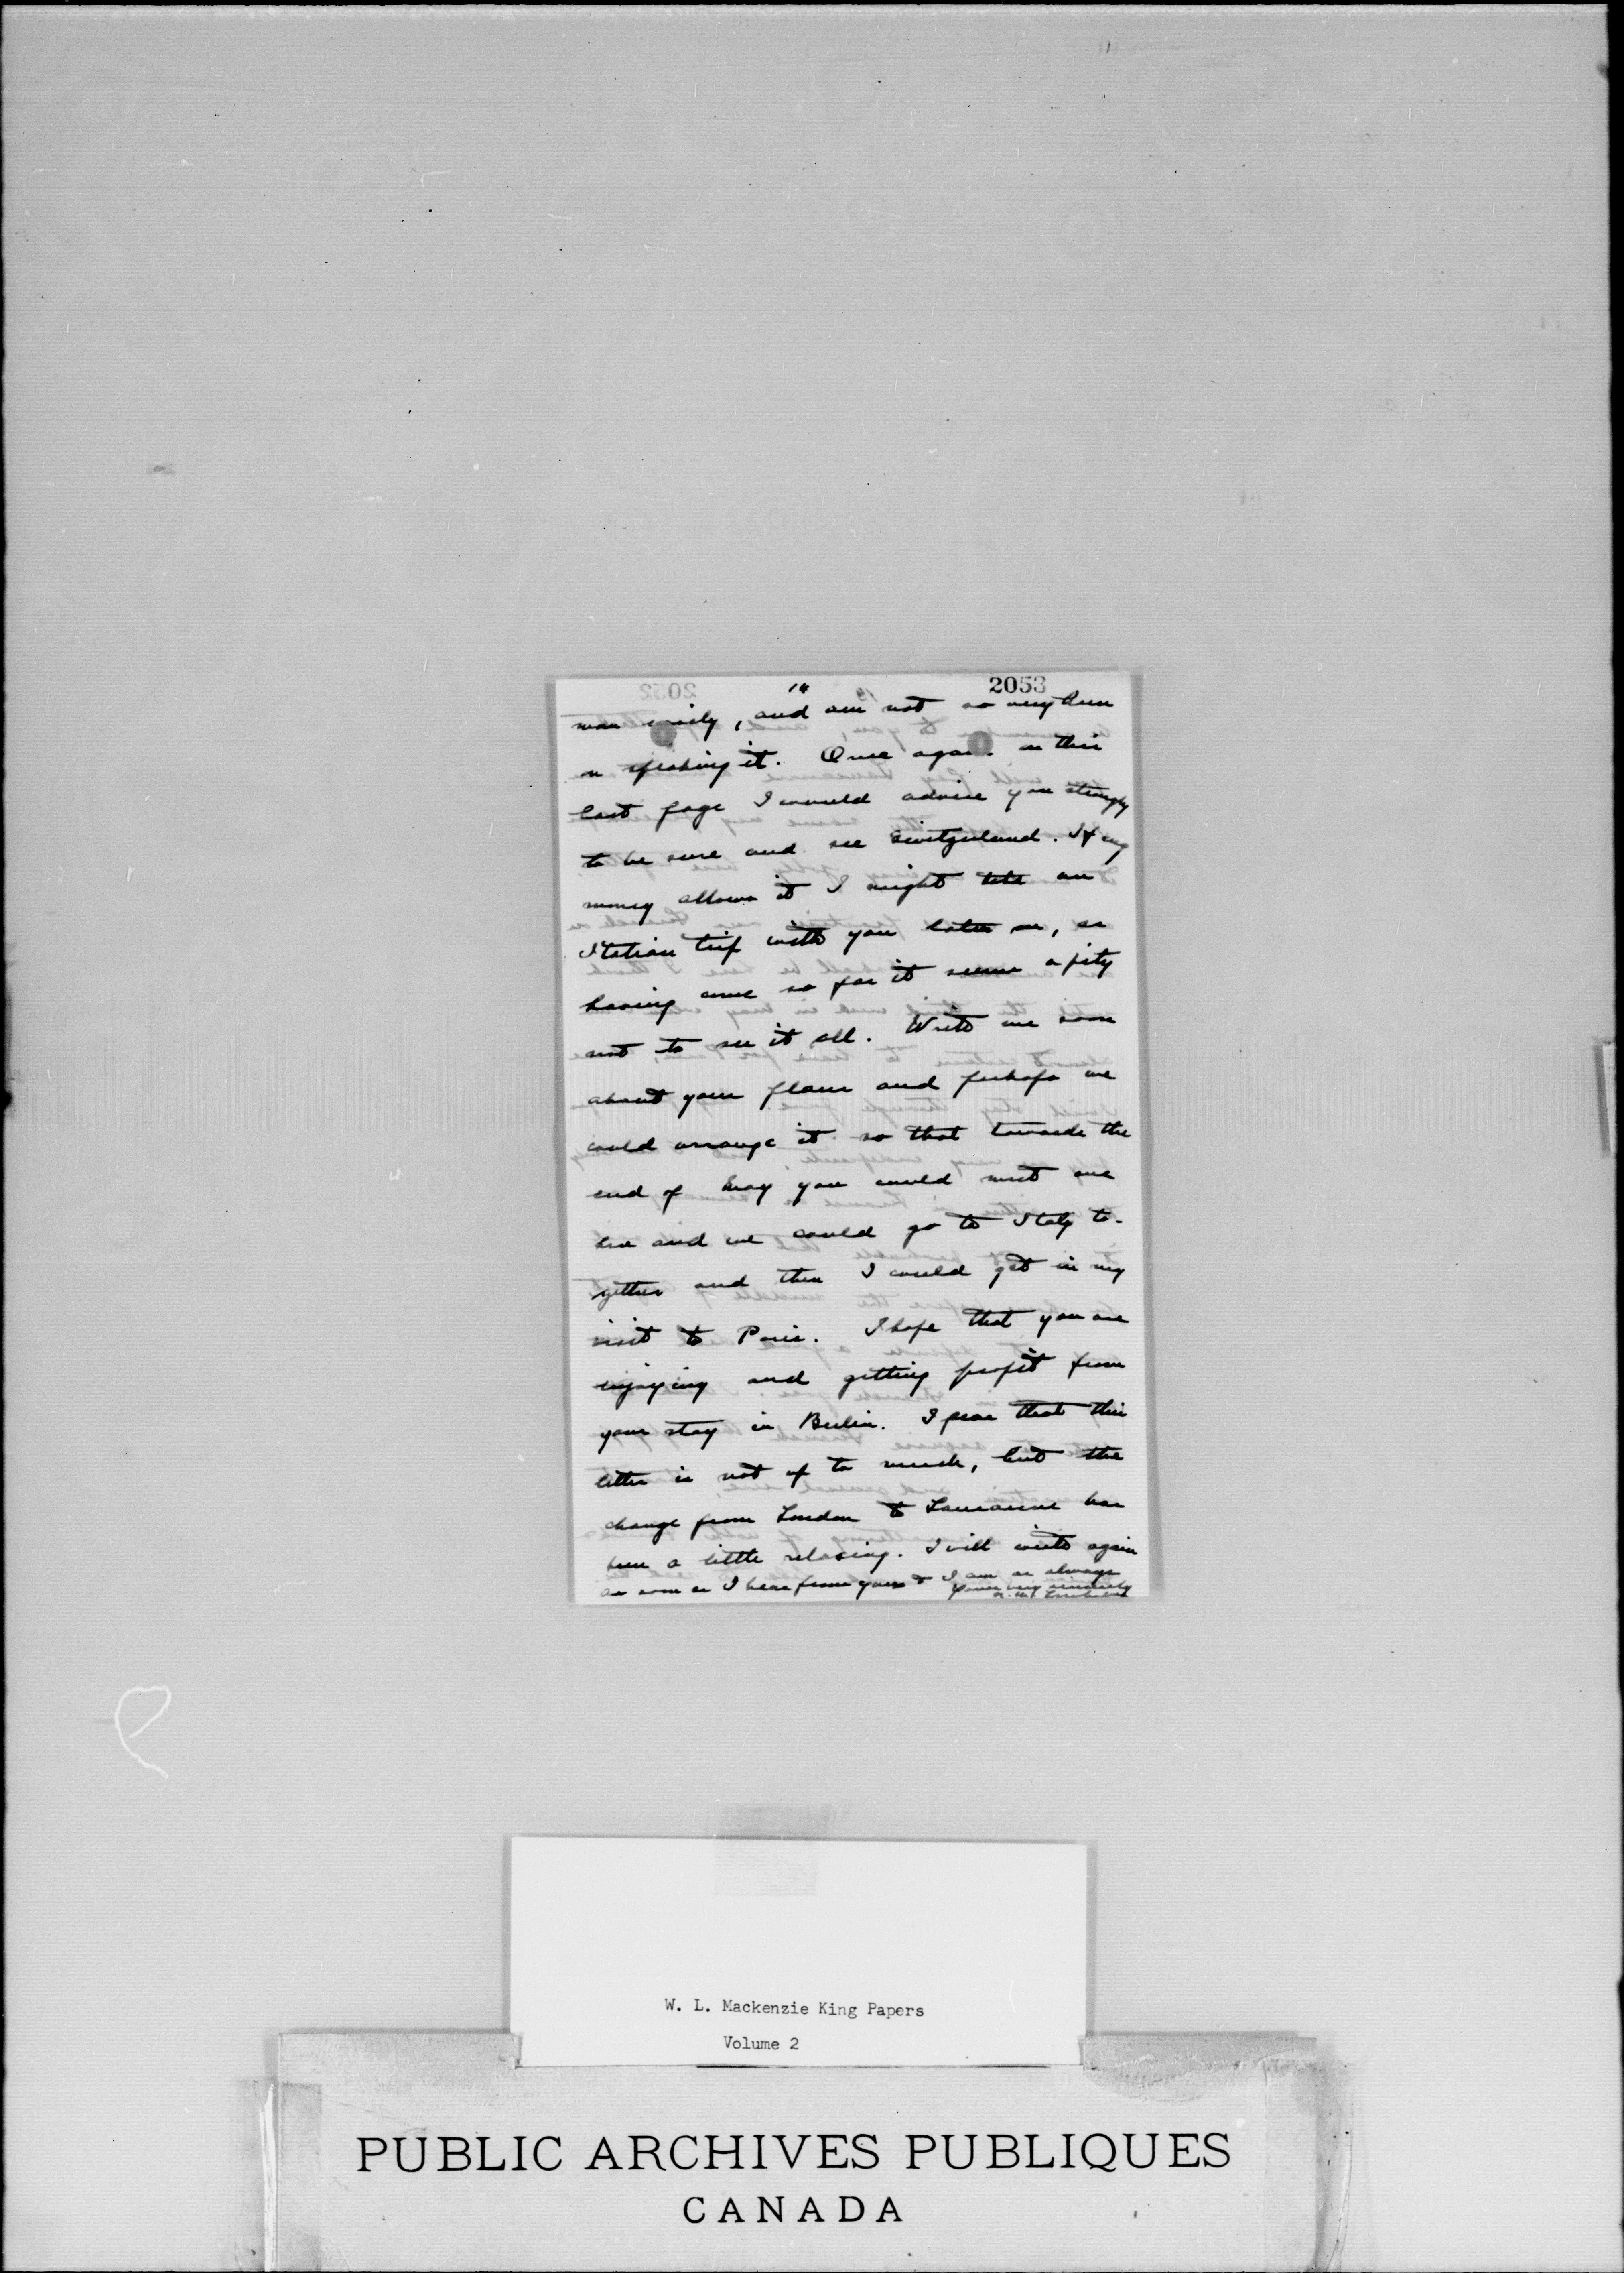 2053
14
man easily, and am not so very
on speaking it. Once again on this
last page I would advise you strongly
to be sure and see Switzerland. If my
money allows it I might take an
Italian trip with you later on, as
having come so far it seems a pity
not to see it all. Write me soon
about your plans and perhaps we
could arrange it so that towards the
end of May you could meet me
here and we could go to Italy to-
gether and then I could get in my
visit to Paris. I hope that you are
enjoying and getting profit from
your stay in Berlin. I fear that this
letter is not up to much, but the
change from London to Lausanne has
been a little relaxing. I will write again
as soon as I hear from you & I am as always
Yours very sincerely
W. L. Mackenzie King Papers
Volume 2
PUBLIC ARCHIVES PUBLIQUES
CANADA